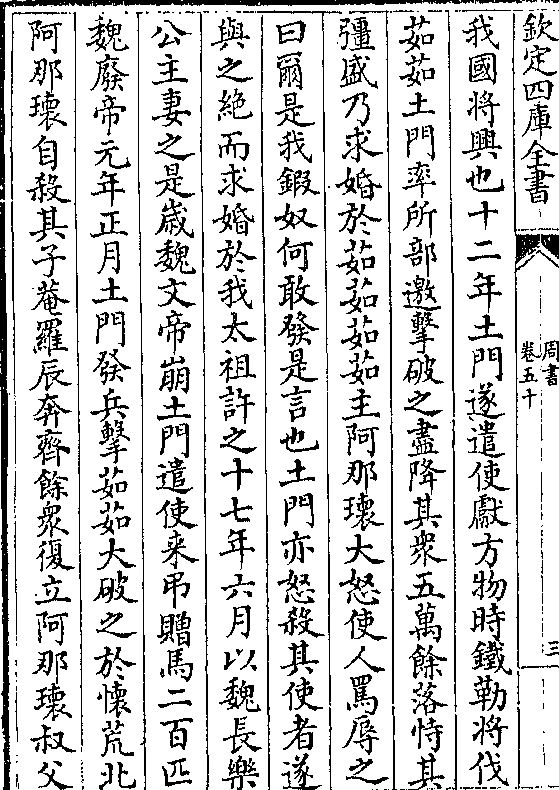 欽定四庫全書
周書
卷五十
三
我國將興也十二年土門遂遣使獻方物時鐵勒將伐
茹茹土門率所部邀擊破之盡降其衆五萬餘落恃其
彊盛乃求婚於茹茹茹茹主阿那瓌大怒使人罵辱之
曰爾是我鍜奴何敢發是言也土門亦怒殺其使者遂
與之絶而求婚於我太祖許之十七年六月以魏長樂
公主妻之是嵗魏文帝崩土門遣使来弔贈馬二百匹
魏廢帝元年正月土門發兵擊茹茹大破之於懷荒北
阿那瓌自殺其子菴羅辰奔齊餘衆復立阿那瓌叔父